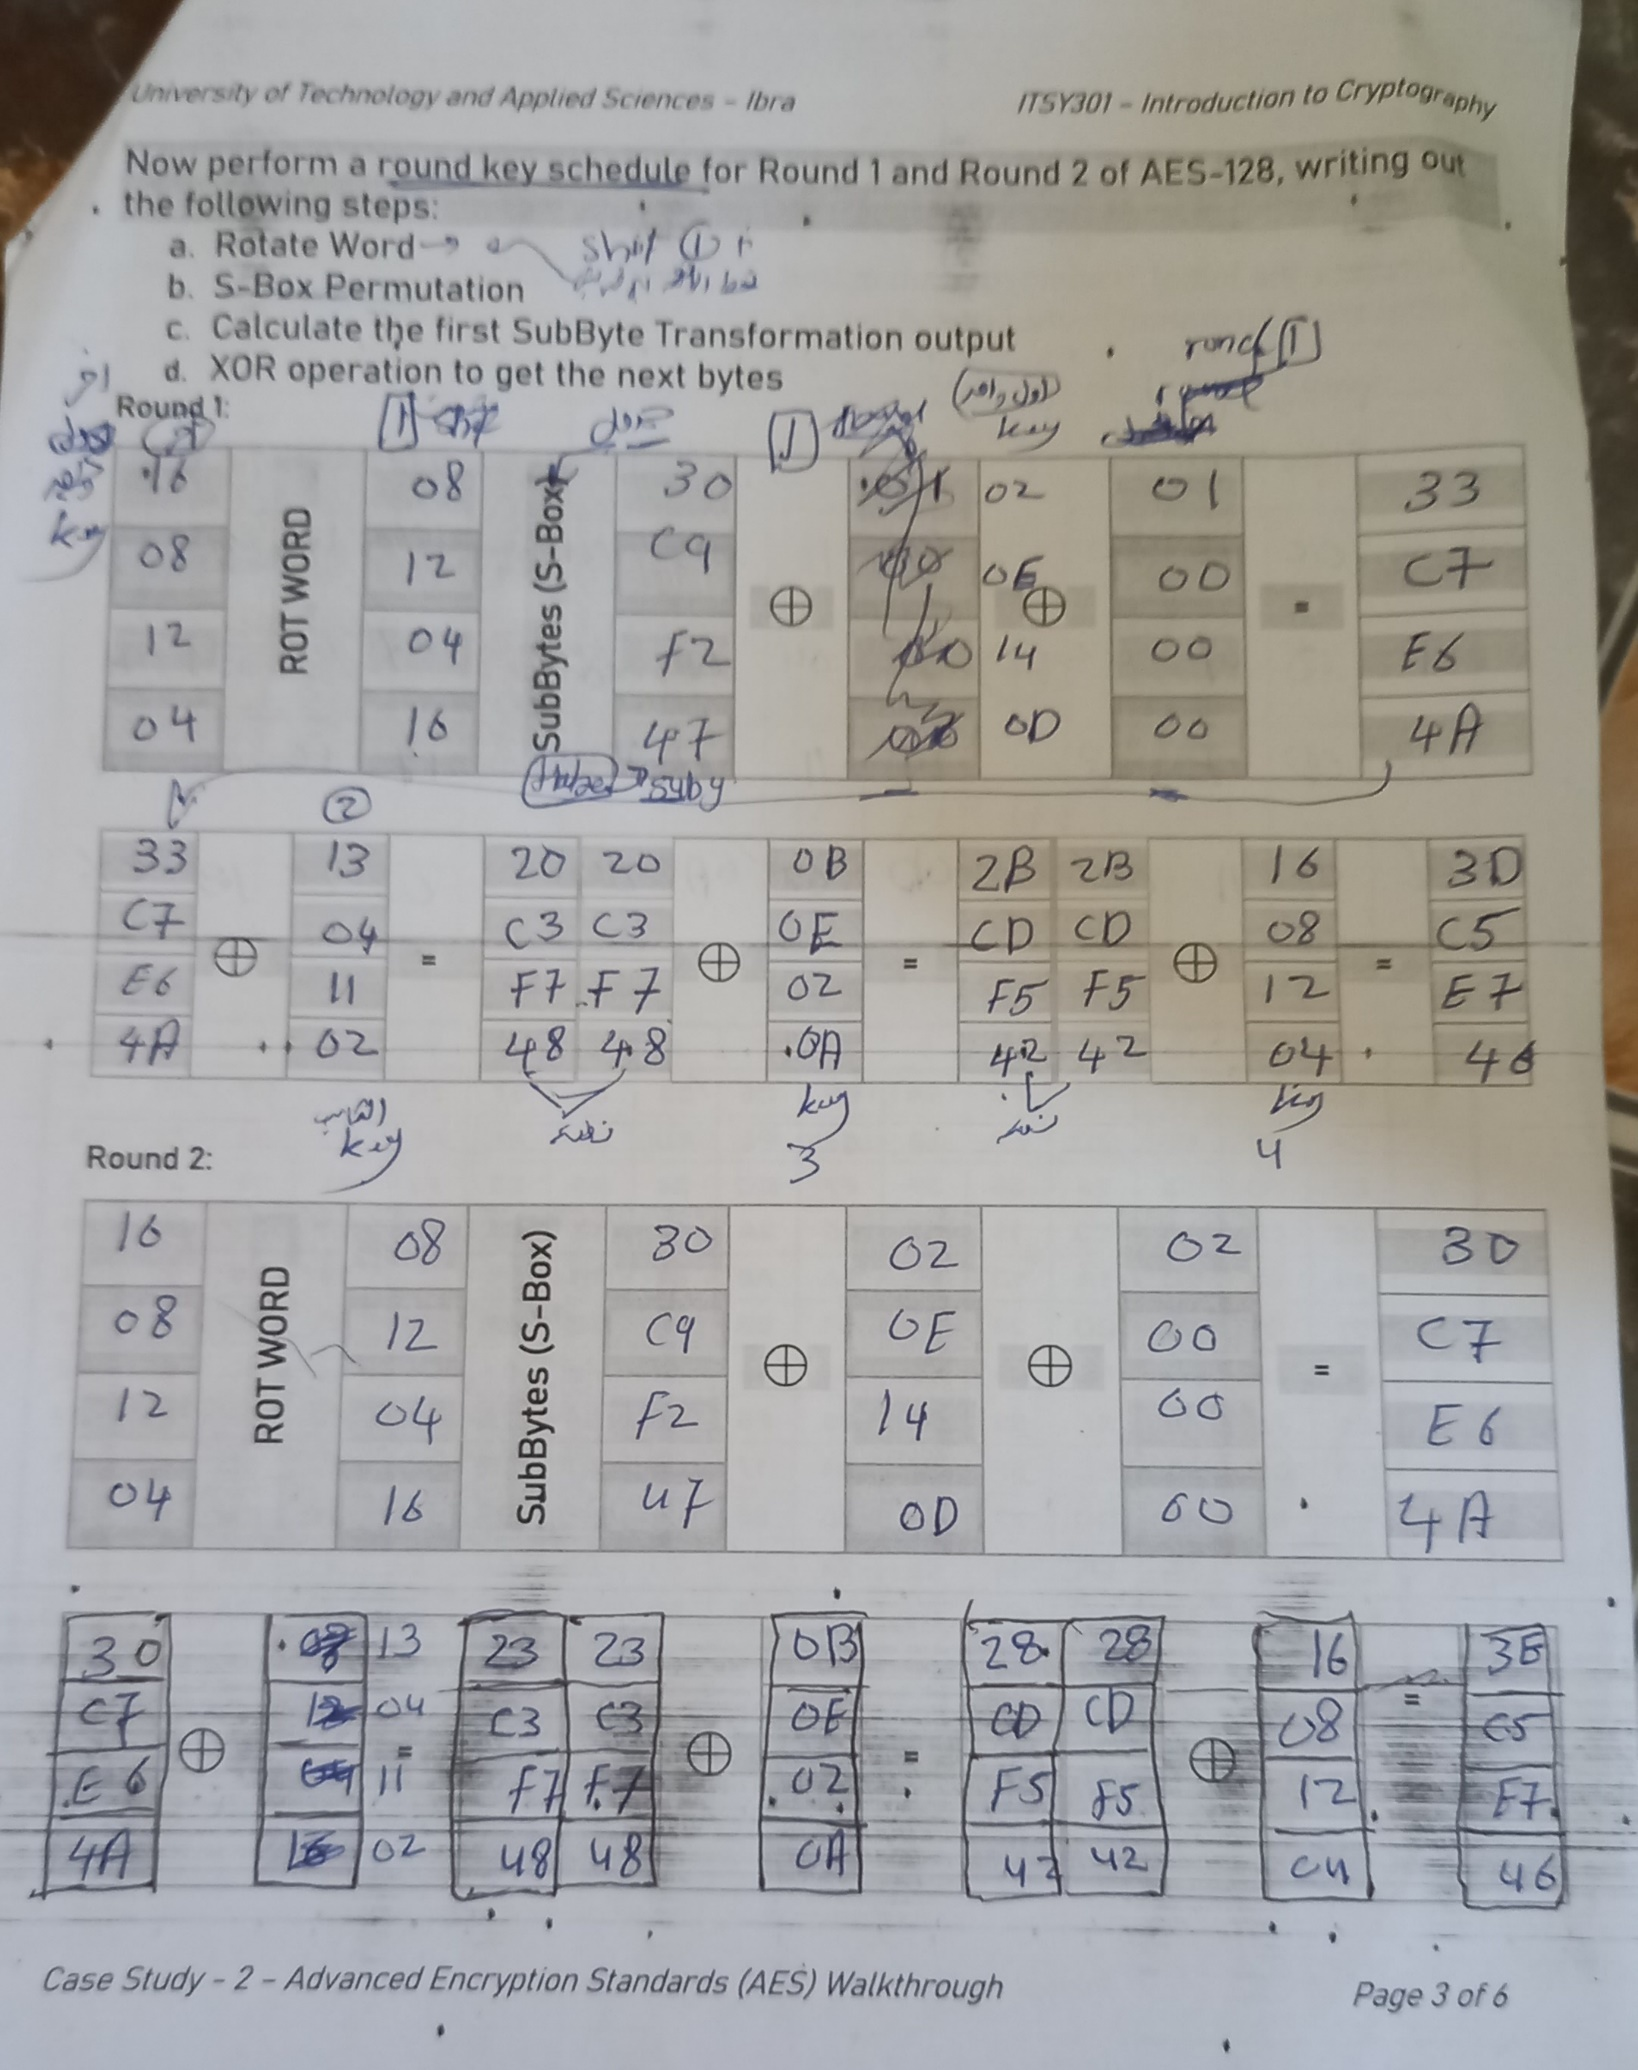 University of Technology and Applied Sciences - Ibra ITSY301 - Introduction to Cryptography
Now perform a round key schedule for Round 1 and Round 2 of AES-128, writing out
the following steps:
a. Rotate Word → shif ① ن
b. S-Box Permutation
c. Calculate the first SubByte Transformation output
d. XOR operation to get the next bytes
Round 1:
key
key
16 08 30 02 01 33
ROT WORD
SubBytes (S-Box)
08 12 C9 0E 00 C7
⊕ ⊕ =
12 04 F2 14 00 E6
04 16 47 0D 00 4A
suby
②
33 13 20 20 0B 2B 2B 16 3D
C7 04 C3 C3 0E CD CD 08 C5
⊕ = ⊕ = ⊕ =
E6 11 F7 F7 02 F5 F5 12 E7
4A 02 48 48 0A 42 42 04 46
key key key
3 4
Round 2:
16 08 30 02 02 30
ROT WORD
SubBytes (S-Box)
08 12 C9 0E 00 C7
⊕ ⊕ =
12 04 F2 14 00 E6
04 16 47 0D 00 4A
30 13 23 23 0B 28 28 16 3E
C7 04 C3 C3 0E CD CD 08 C5
⊕ = ⊕ = ⊕ =
E6 11 F7 F7 02 F5 F5 12 E7
4A 02 48 48 0A 42 42 04 46
Case Study - 2 - Advanced Encryption Standards (AES) Walkthrough Page 3 of 6